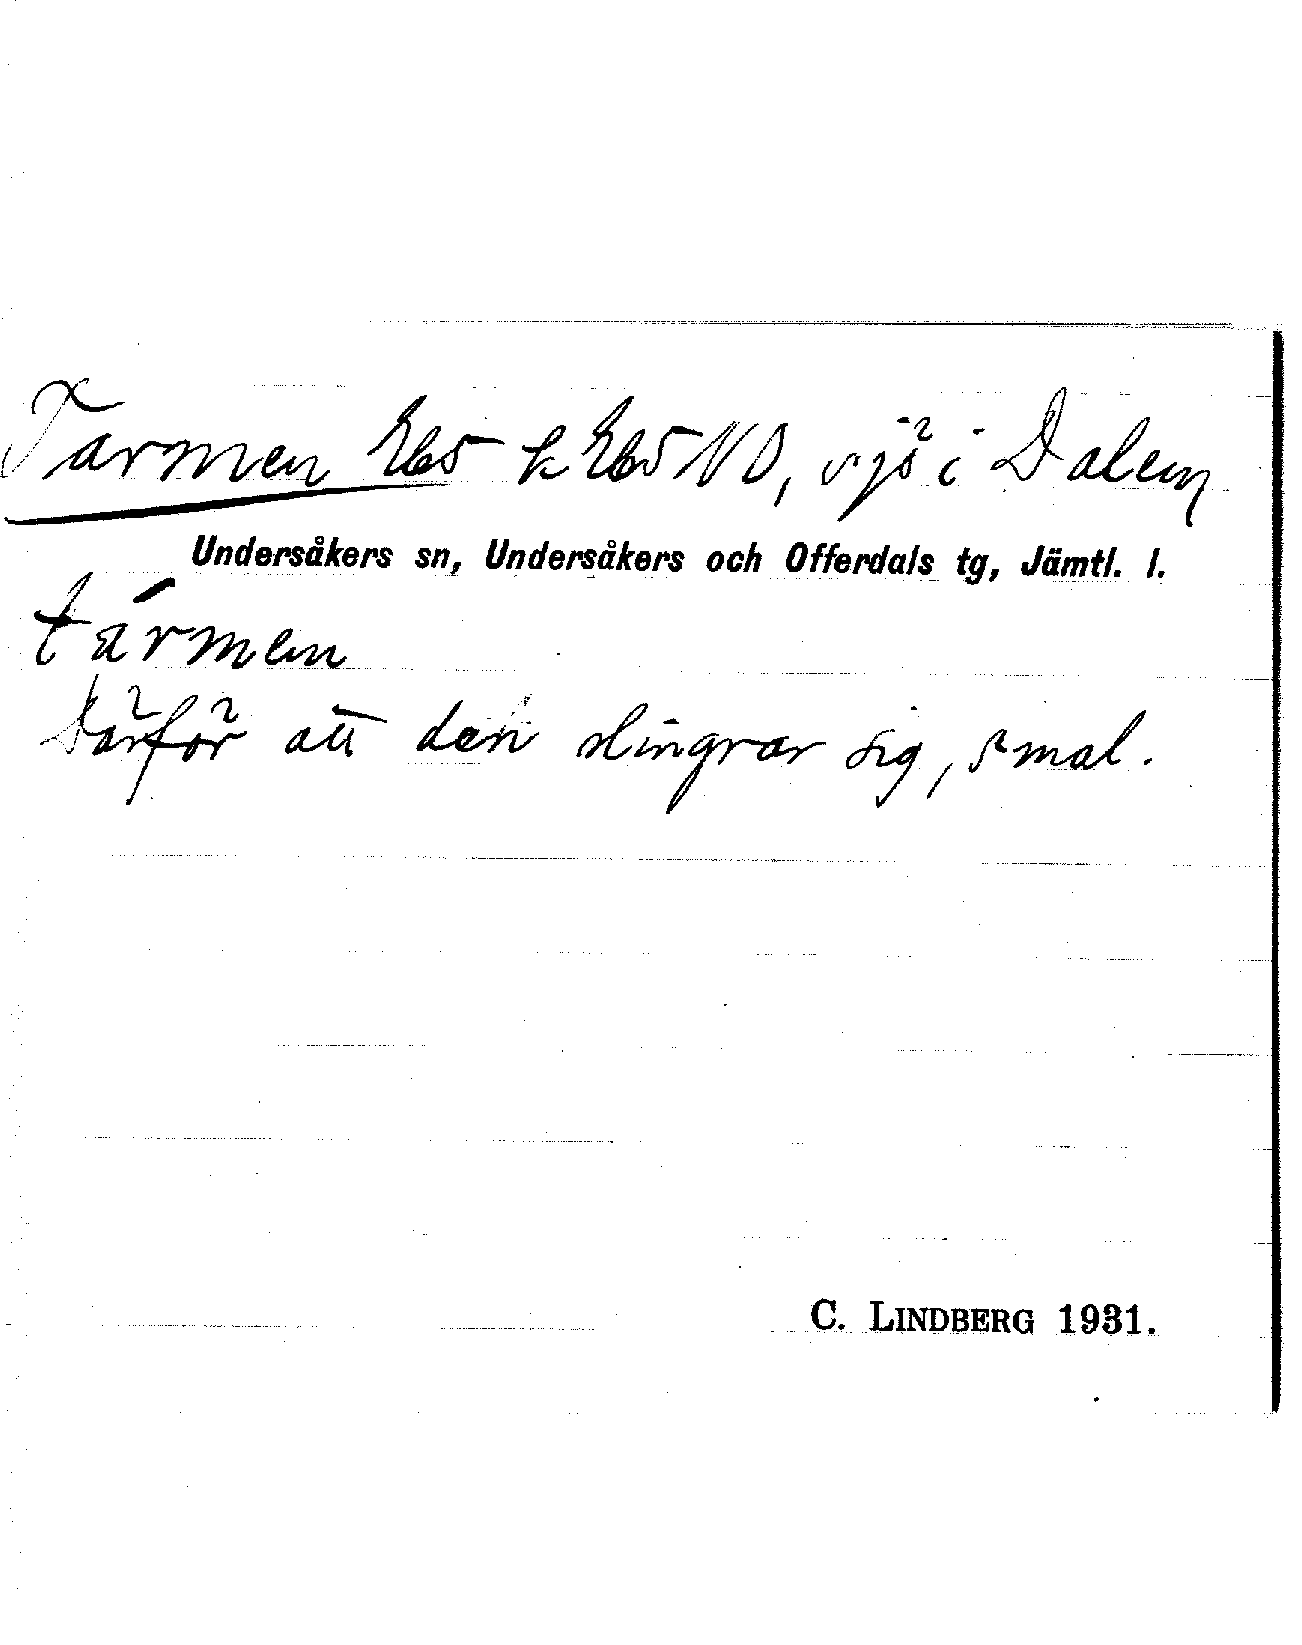 Tarmen Eb5 k Eb5 NO, sjö i Dalen
Undersåkers sn, Undersåkers och Offerdals tg, Jämtl. l.
tármen
Därför att den slingrar sig, smal.
C. LINDBERG 1931.